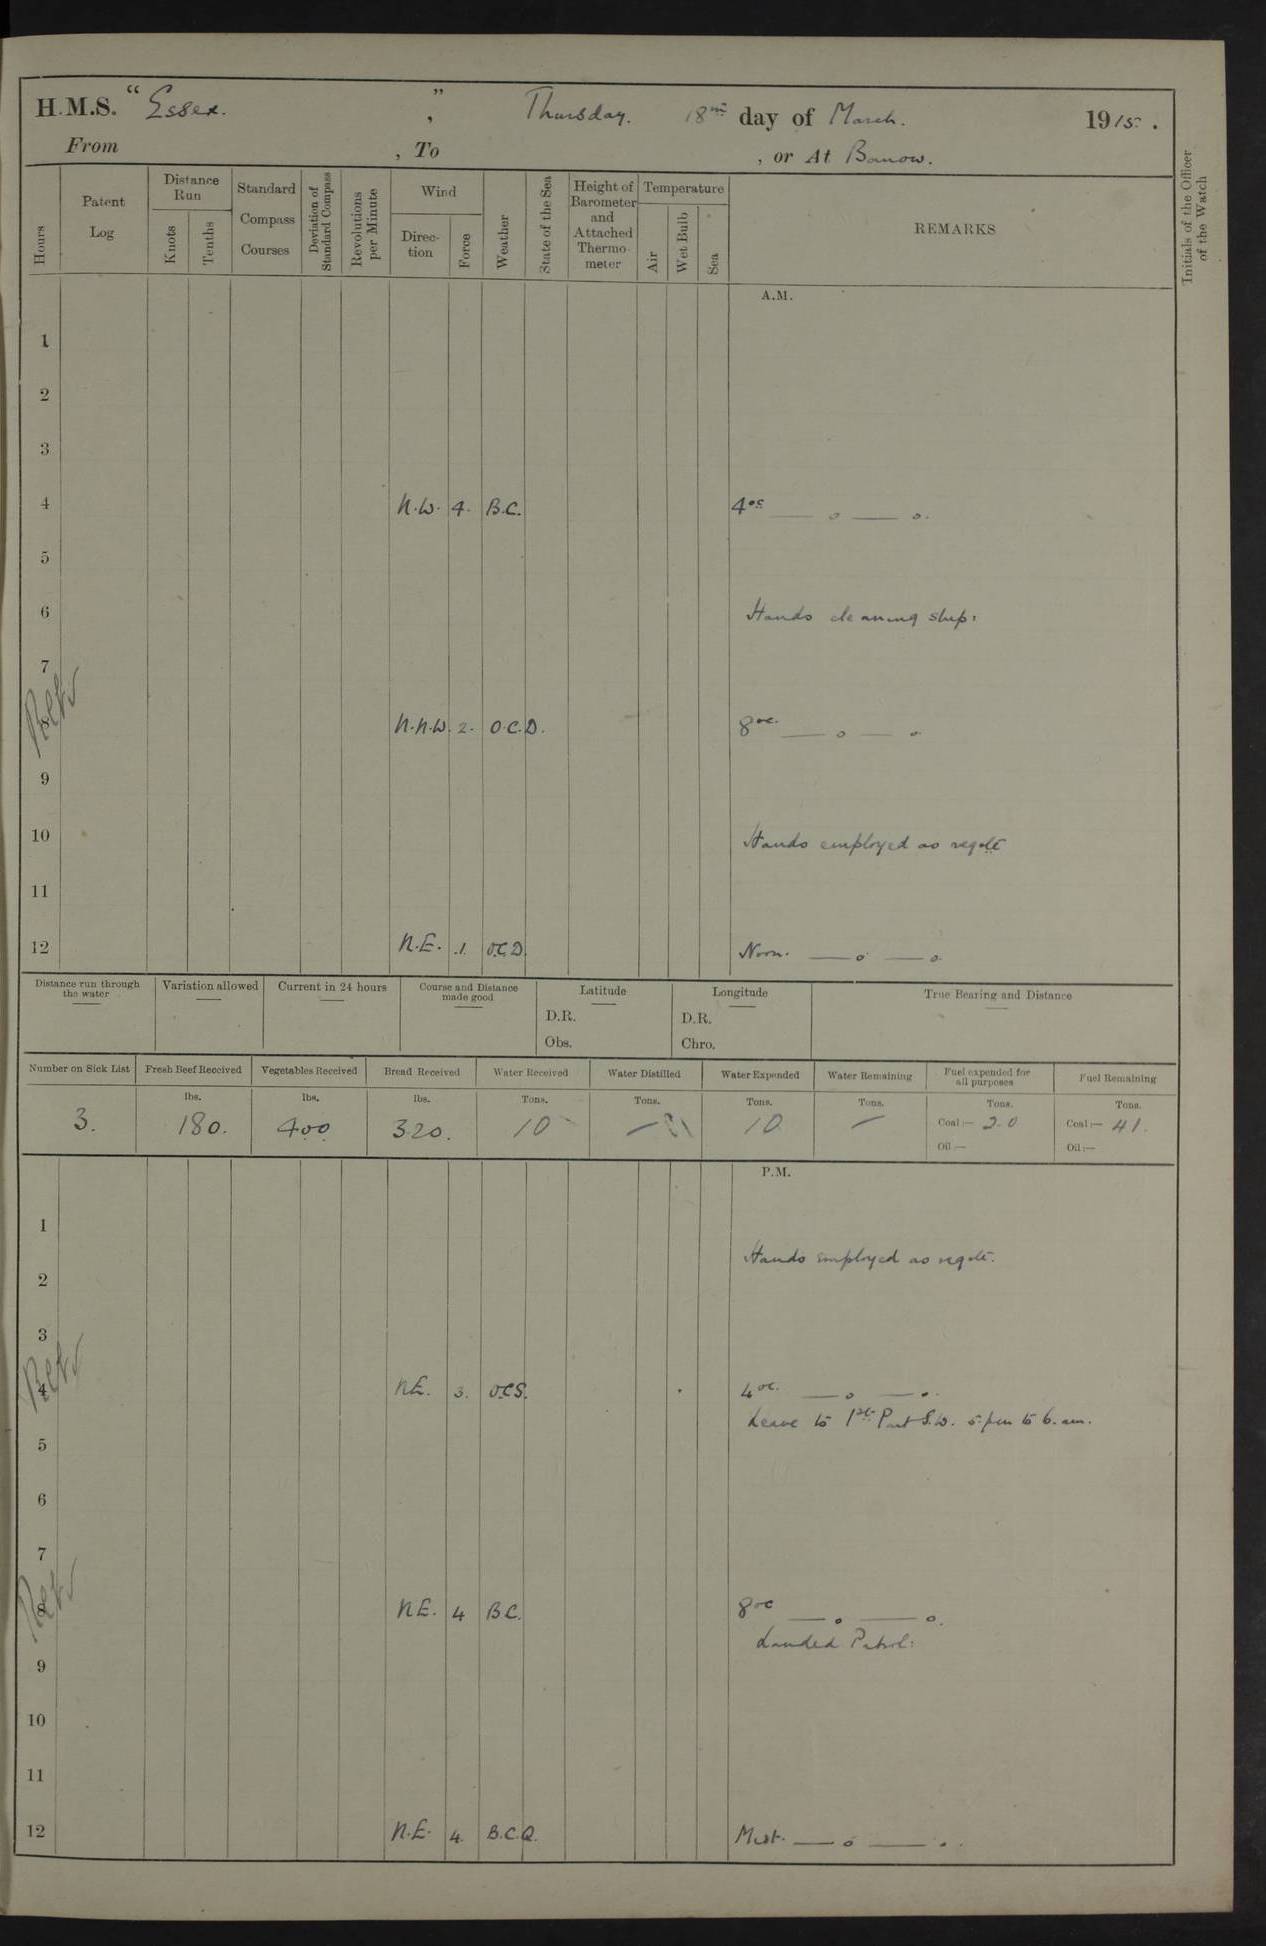 H.M.S. “ Essex. ” , Thursday. 18th day of March. 1915 .
From , To , or At Barrow.
Hours
Patent Log
Distance Run
Knots
Tenths
Standard Compass Courses
Deviation of Standard Compass
Revolutions per Minute
Wind
Direction
Force
Weather
State of the Sea
Height of Barometer and Attached Thermometer
Temperature
Air
Wet Bulb
Sea
REMARKS
Initials of the Officer of the Watch
A.M.
1
2
3
4 N.W. 4. B.C. 4oc — o — o.
5
6 Hands cleaning ship:
7
N.N.W. 2. O.C.D. 8oc. — o — o
9
10 Hands employed as reqte
11
12 N.E. .1. O.C.D. Noon. — o — o
Distance run through the water
Variation allowed
Current in 24 hours
Course and Distance made good
Latitude
D.R.
Obs.
Longitude
D.R.
Chro.
True Bearing and Distance
Number on Sick List Fresh Beef Received Vegetables Received Bread Received Water Received Water Distilled Water Expended Water Remaining Fuel expended for all purposes Fuel Remaining
lbs. lbs. lbs. Tons. Tons. Tons. Tons. Tons. Tons.
3. 180. 400 320. 10 — 10 — Coal:— 20 Coal:— 41.
Oil:— Oil:—
P.M.
1
Hands employed as reqte.
2
3
4 N.E. 3. O.C.S. 4oc. — o — o.
Leave to 1st Part S.W. 5 pm to 6. am.
5
6
7
8 N.E. 4 B.C. 8oc — o — o.
Landed Patrol:
9
10
11
12 N.E. 4. B.C.Q. Midt. — o — .